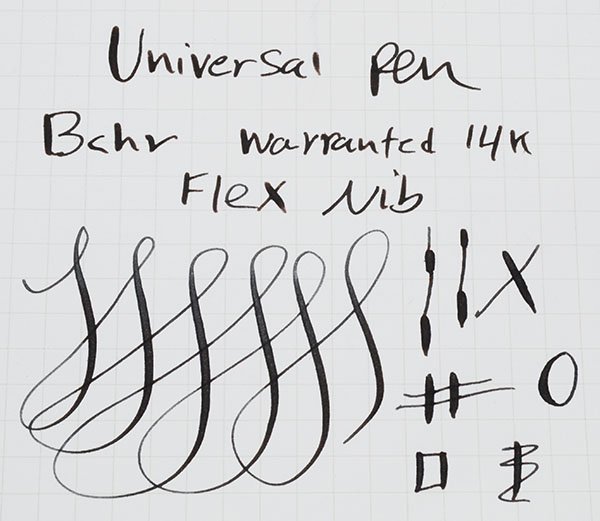 Universal Pen
Behr Warranted 14K
Flex Nib